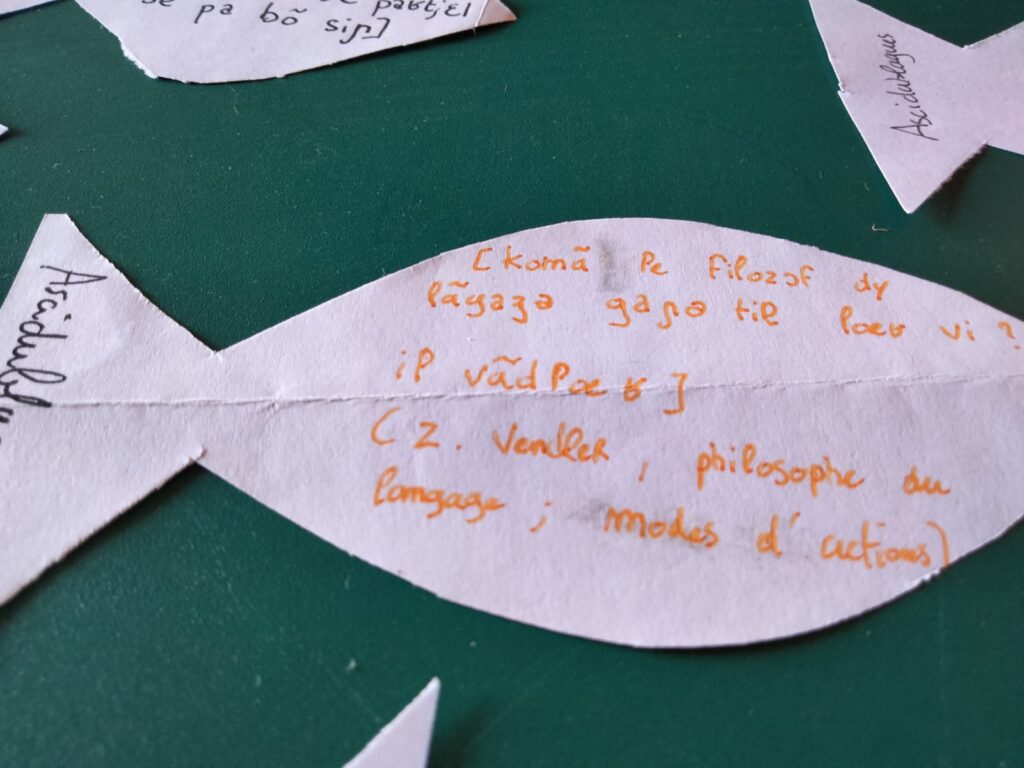 paʁtjɛl
se pa bõ siɲ]
Ascidublagues
[komã le filozɔf dy
lãgaʒə gaɲə til lœʁ vi ?
il vãdlœʁ]
(Z. Vendler, philosophe du
langage ; modes d'actions)